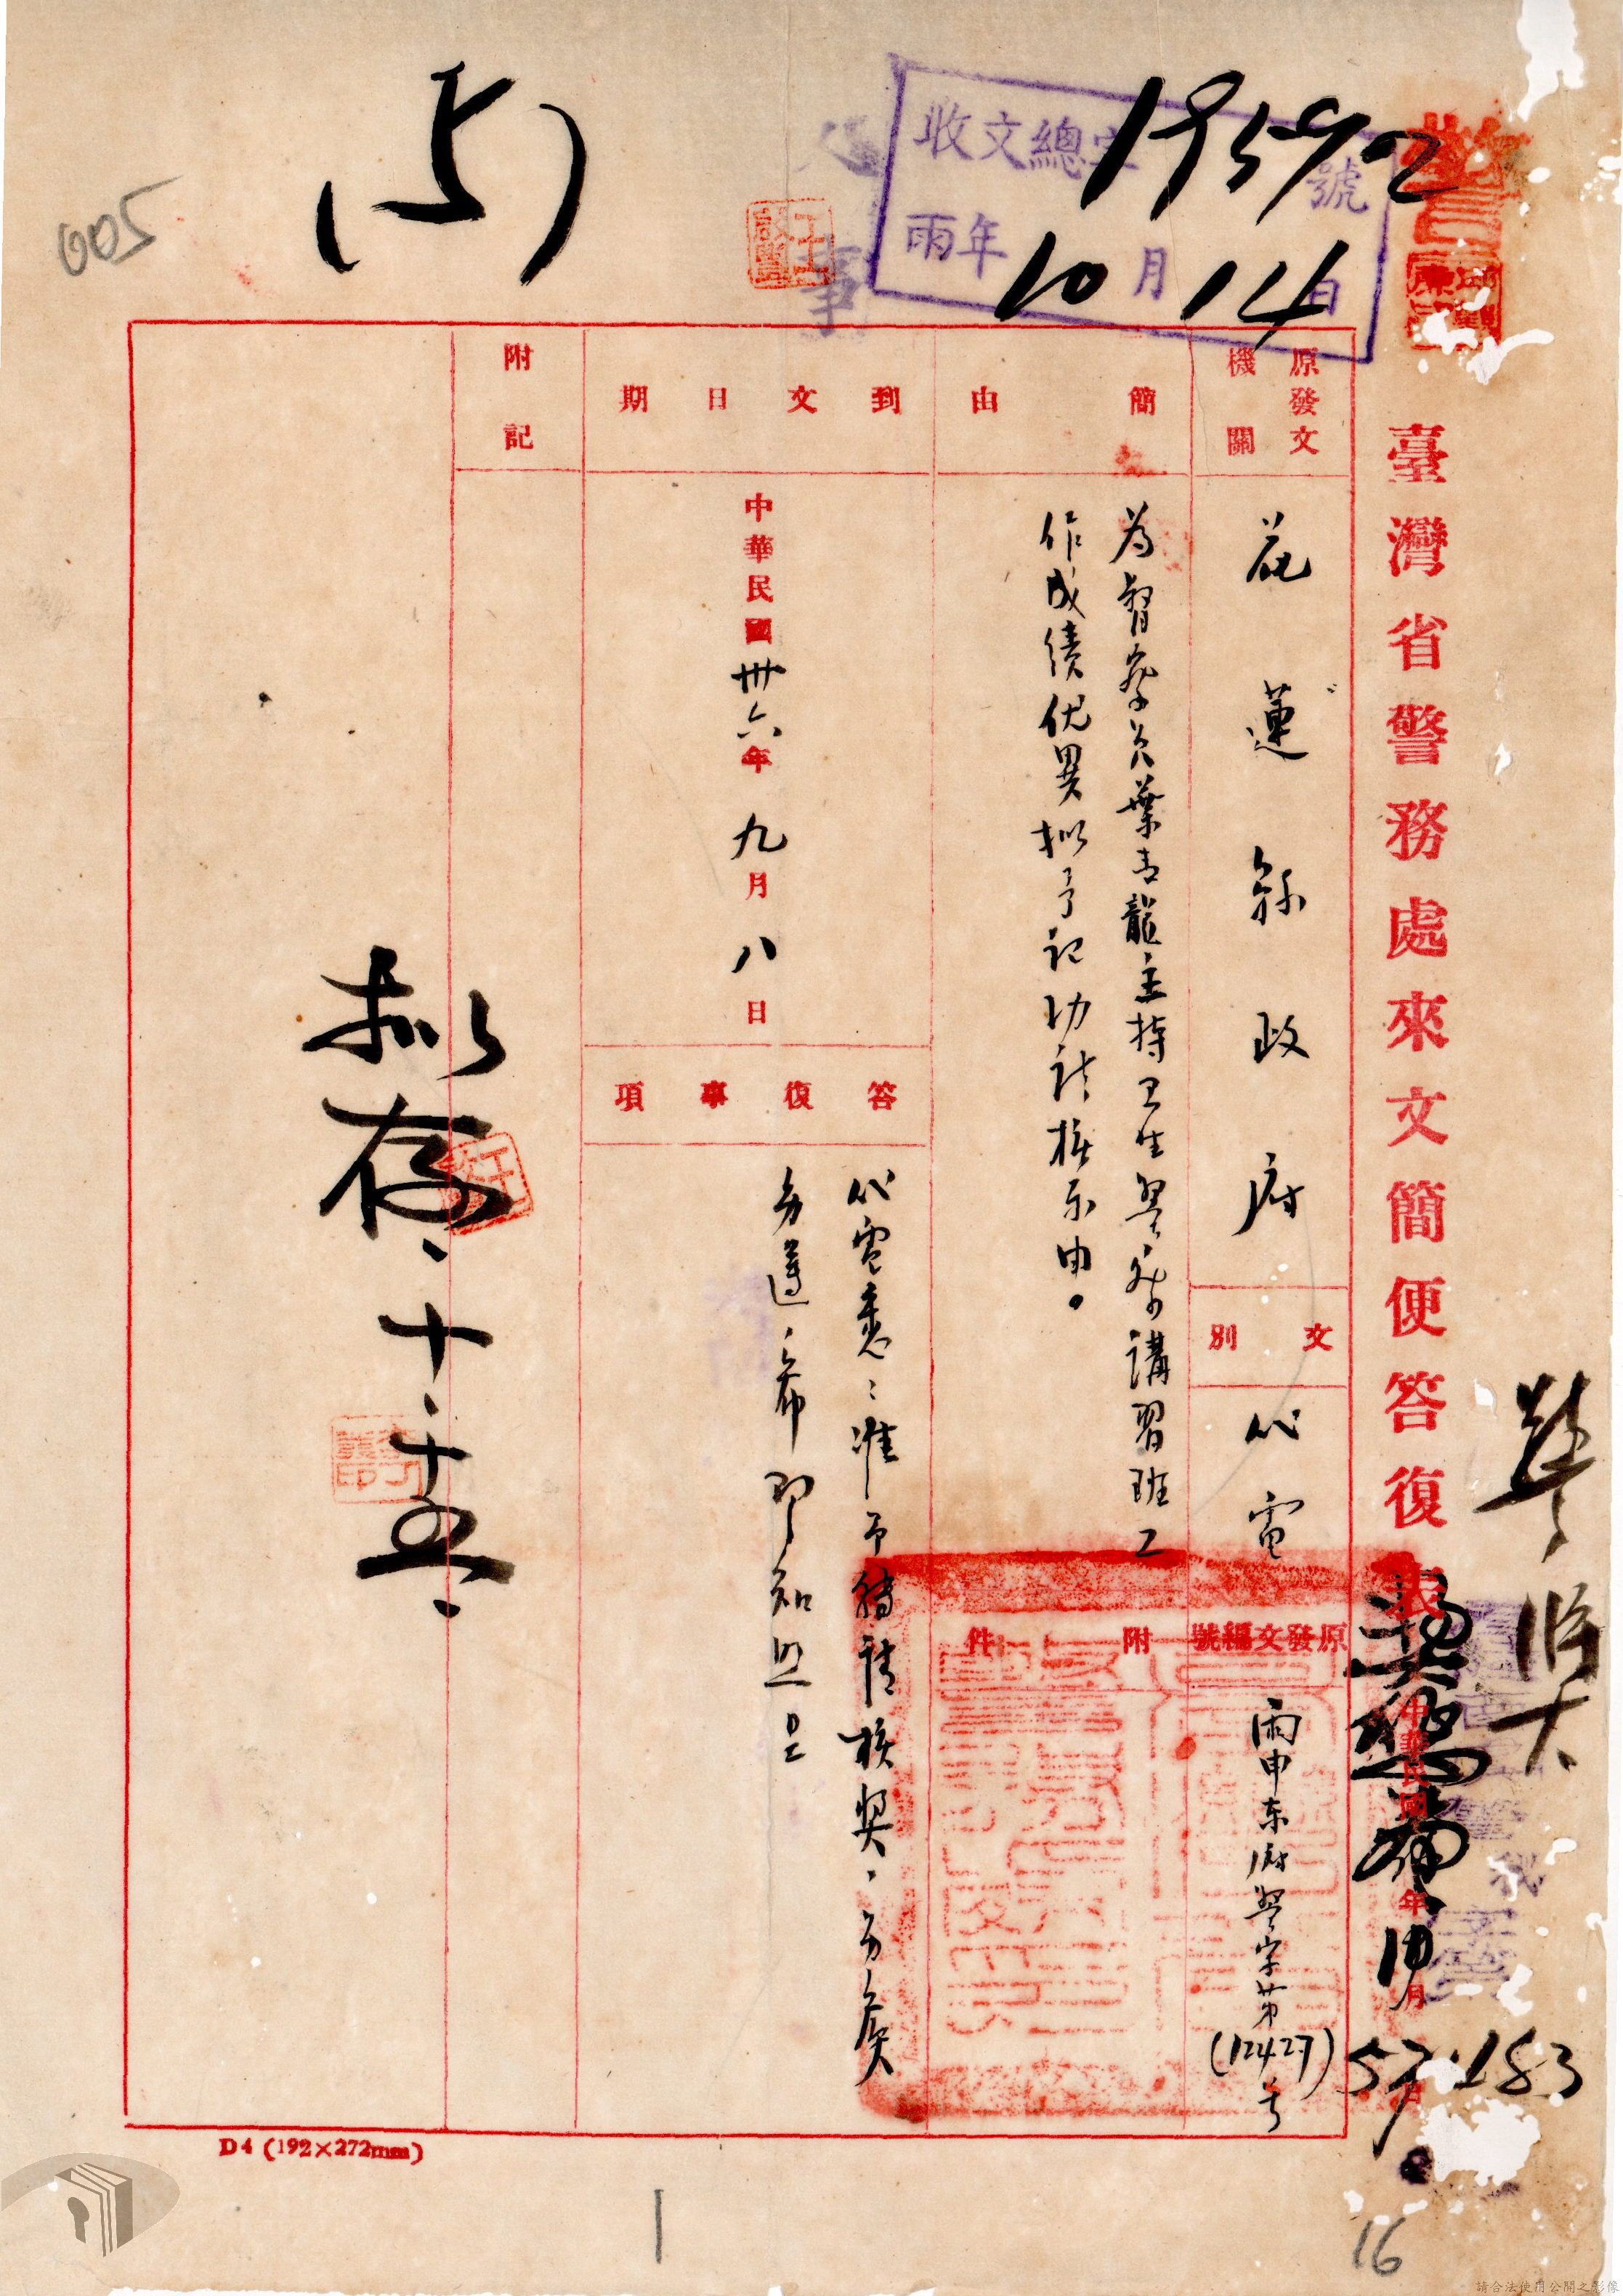 收文總字19592號
雨年10月14日
(5)
005
臺灣省警務處來文簡便答復表
中華民國 年 月 日
57183
原發文機關
花蓮縣政府
文別
代電
原發文編號
雨申东府警字第(12427)号
簡由
為督察員葉青龍主持卫生警察講習班工
作成績优異拟予記功請核示由。
附件
到文日期
中華民國卅六年九月八日
答復事項
代電悉准予轉請核奬分處
分遵希即知照
附記
拟存、十、十五、
D4 (192×272mm)
1
16
請合法使用公開之影像